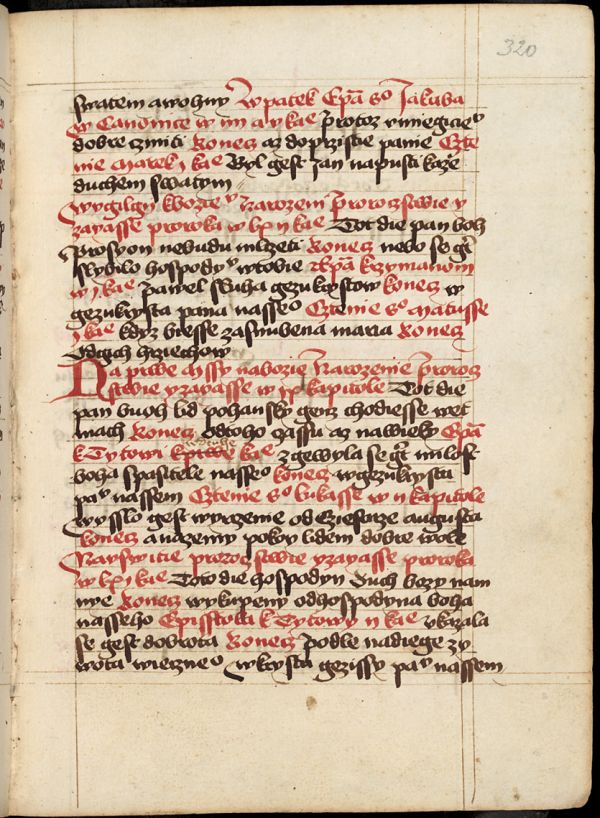 320
swatem a wohny W patek Epa s° Jakuba
w Canonice w iiii a v kae Protoz vmiegicie
dobre cziniti konecz az do przistie panie Czte
nie Marek i kae Byl gest Jan na pusti krzte
duchem swatym
Wygilgij bozie° Narozenie Proroczstwie y
zayasse proroka w lxii kae Tot die pan boh
Pro syon nebudu mlczeti konecz nebo se gt
slybilo hospody° w tobie Epa k rzymanom
w i kae pawel sluha gezukrystow konecz w
gezukrysta pana nasse° Cztenie s° Matusse
i kae kdyz biesse zasnubena maria konecz
od gich hrziechow
Na prwe Mssy na bozie Narozenie Prorocz
stwie yzayasse w ix kapitole Tot die
pan buoh lid pohansky genz chodiesse wet
mach konecz od toho czassu az na wieky Epa
k Tytowi k prwe kae zgewyla se gt milost
boha spasitele nasse° konecz w gezukrysta
pa° nassem Cztenie s° lukasse w ii kapitole
wysslo gest wyrczenie od Czieforze augusta
konecz a na zemy pokoy lidem dobre wole
Na yswitie proroczstwie yzayasse proroka
w lxi kae Toto die hospodyn Duch bozy nam
nye konecz wykupeny od hospodyna boha
nasseho Episstola k Tytowy ii kae vkazala
se gest dobrota konecz podle nadiege zy
wota wieczne° w krysta gezissy pa° nassem